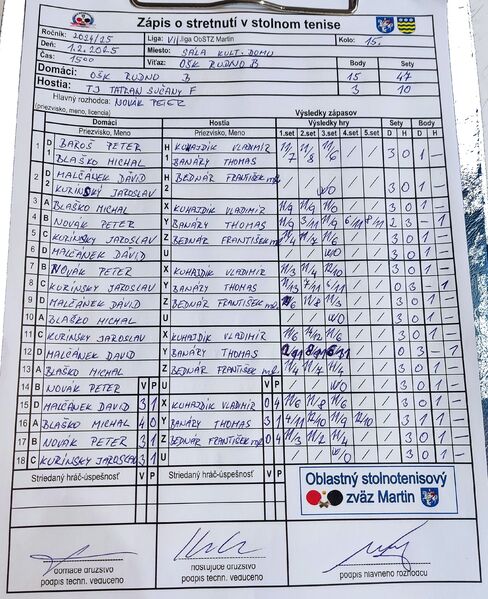 Zápis o stretnutí v stolnom tenise
Ročník: 2024/25 Liga: VII. liga ObSTZ Martin Kolo: 15.
Deň: 1.2.2025 Miesto: SÁLA KULT. DOMU
Čas: 15⁰⁰ Víťaz: OŠK RUDNO B Body Sety
Domáci: OŠK RUDNO B 15 47
Hostia: TJ TATRAN SUČANY F 3 10
Hlavný rozhodca: NOVÁK PETER
(priezvisko, meno, licencia)
Domáci Hostia Výsledky zápasov
Výsledky hry Sety Body
Priezvisko, Meno Priezvisko, Meno 1.set 2.set 3.set 4.set 5.set D H D H
1 D1 BAROŠ PETER H1 KUHAJDIK VLADIMÍR 11/7 11/8 11/6 / / 3 0 1 –
BLAŠKO MICHAL BANÁRY THOMAS
2 D2 MALČÁNEK DAVID H2 BEDNÁR FRANTIŠEK ml. / / WO / / 3 0 1
KURINSKÝ JAROSLAV
3 A BLAŠKO MICHAL X KUHAJDIK VLADIMÍR 11/9 11/9 11/6 / / 3 0 1 –
4 B NOVÁK PETER Y BANÁRY THOMAS 11/9 3/11 11/9 6/11 8/11 2 3 – 1
5 C KURINSKY JAROSLAV Z BEDNÁR FRANTIŠEK ml. 11/4 11/7 11/6 / / 3 0 1 –
6 D MALČÁNEK DAVID U / / WO / / 3 0 1 –
7 B NOVAK PETER X KUHAJDIK VLADIMÍR 11/3 11/4 12/10 / / 3 0 1 –
8 C KURINSKY JAROSLAV Y BANÁRY THOMAS 11/13 7/11 6/11 / / 0 3 – 1
9 D MALČÁNEK DAVID Z BEDNÁR FRANTIŠEK ml. 11/8 11/3 / / 3 0 1 –
10 A BLAŠKO MICHAL U / / WO / / 3 0 1 –
11 C KURINSKY JAROSLAV X KUHAJDIK VLADIMÍR 11/6 14/12 11/6 / / 3 0 1 –
12 D MALČÁNEK DAVID Y BANÁRY THOMAS 8/11 / / 0 3 – 1
13 A BLAŠKO MICHAL Z BEDNÁR FRANTIŠEK ml. 11/4 11/7 11/4 / / 3 0 1 –
14 B NOVÁK PETER V P U V P / / WO / / 3 0 1 –
15 D MALČÁNEK DAVID 3 1 X KUHAJDIK VLADIMÍR 0 4 / / 3 0 1 –
16 A BLAŠKO MICHAL 4 0 Y BANÁRY THOMAS 3 1 4/11 12/10 11/9 12/10 / 3 1 1 –
17 B NOVÁK PETER 3 1 Z BEDNÁR FRANTIŠEK ml. 0 4 11/3 11/2 11/4 / / 3 0 1 –
18 C KURINSKY JAROSLAV 3 1 U / / WO / / 3 0 1 –
Striedaný hráč-úspešnosť V P Striedaný hráč-úspešnosť V P
Oblastný stolnotenisový
zväz Martin
domáce družstvo hosťujúce družstvo podpis hlavného rozhodcu
podpis techn. vedúceho podpis techn. vedúceho